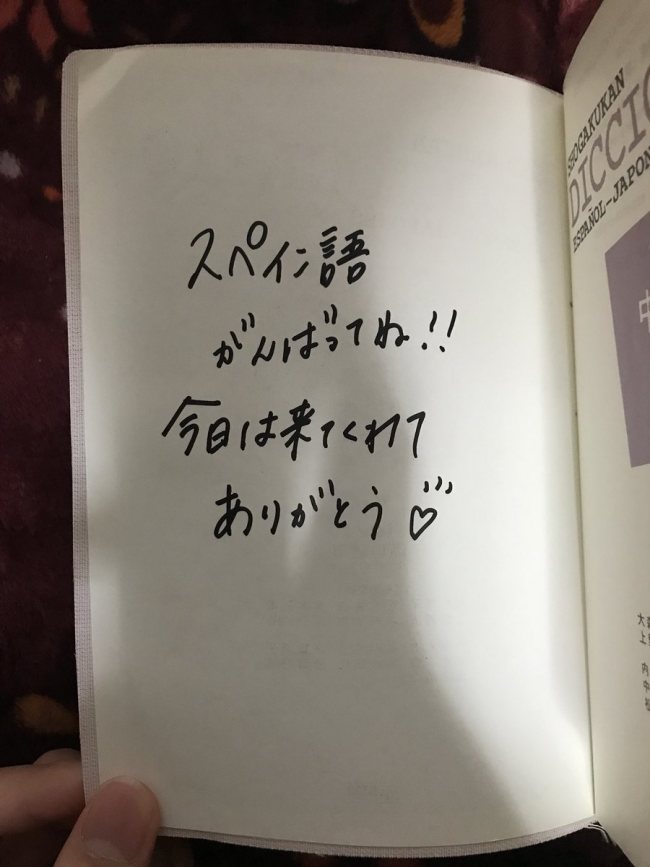 スペイン語
がんばってね!!
今日は来てくれて
ありがとう♡
SHOGAKUKAN
DICCIO
ESPAÑOL-JAPON
中
大
上
内
中